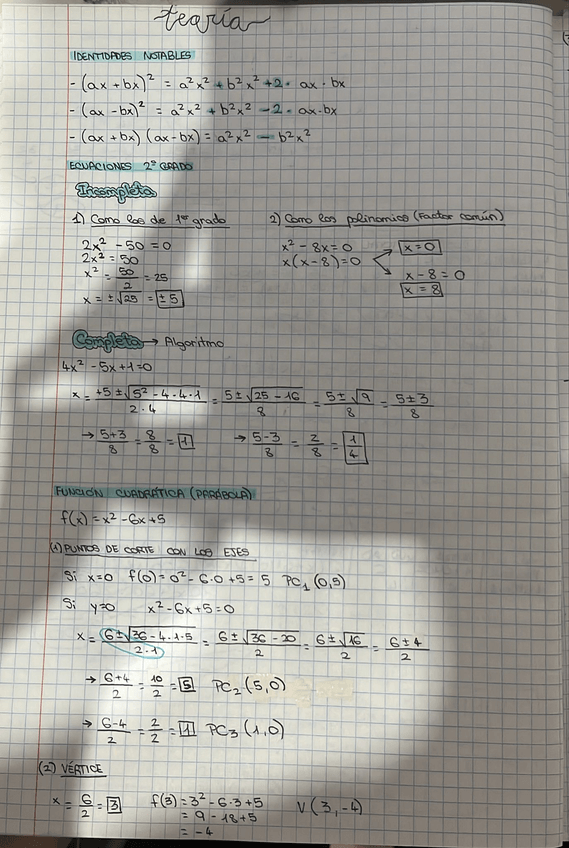 teoría
IDENTIDADES NOTABLES
- (ax + bx)² = a²x² + b²x² + 2 · ax · bx
- (ax - bx)² = a²x² + b²x² - 2 · ax · bx
- (ax + bx) (ax - bx) = a²x² - b²x²
ECUACIONES 2º GRADO
Incompleta
1) Como las de 1er grado
2x² - 50 = 0
2x² = 50
x² = 50/2 = 25
x = ±√25 = ±5
2) Como los polinomios (Factor común)
x² - 8x = 0
x(x-8) = 0
x = 0
x - 8 = 0
x = 8
Completa → Algoritmo
4x² - 5x + 1 = 0
x = (+5 ± √(5² - 4·4·1))/(2·4) = (5 ± √(25 - 16))/8 = (5 ± √9)/8 = (5 ± 3)/8
→ (5+3)/8 = 8/8 = 1 → (5-3)/8 = 2/8 = 1/4
FUNCIÓN CUADRÁTICA (PARÁBOLA)
f(x) = x² - 6x + 5
(1) PUNTOS DE CORTE CON LOS EJES
Si x=0 f(0) = 0² - 6·0 + 5 = 5 PC₁ (0,5)
Si y=0 x² - 6x + 5 = 0
x = (6 ± √(36 - 4·1·5))/(2·1) = (6 ± √(36 - 20))/2 = (6 ± √16)/2 = (6 ± 4)/2
→ (6+4)/2 = 10/2 = 5 PC₂ (5,0)
→ (6-4)/2 = 2/2 = 1 PC₃ (1,0)
(2) VÉRTICE
x = 6/2 = 3 f(3) = 3² - 6·3 + 5 V (3,-4)
= 9 - 18 + 5
= -4